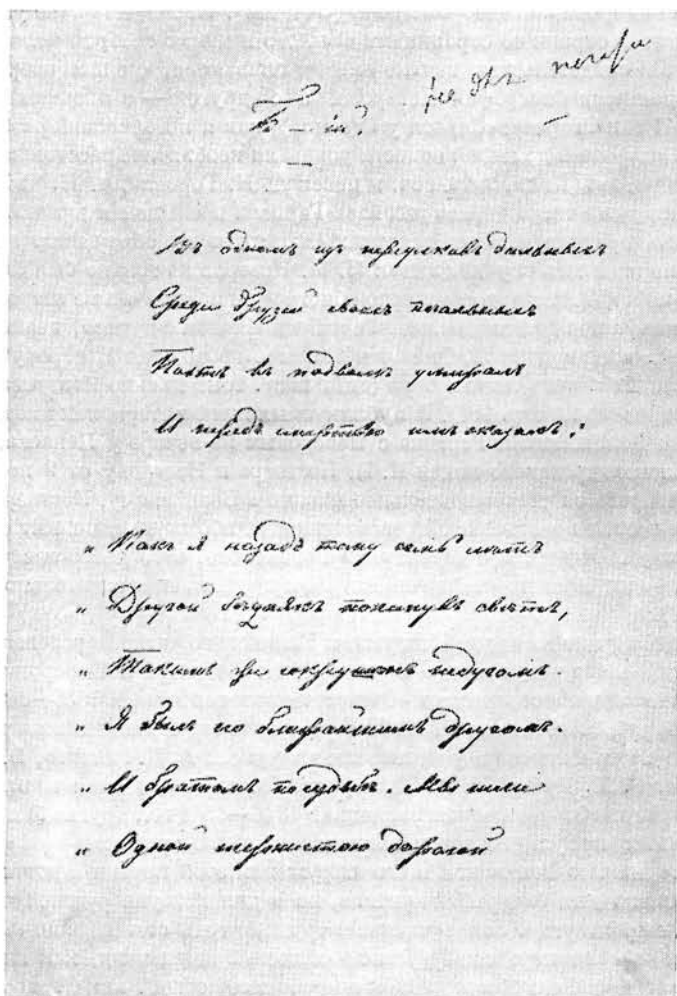 не для печати
Въ одномъ изъ переулковъ дальныхъ
Среди друзей своихъ печальныхъ
Поэтъ въ подвалѣ умиралъ
И передъ смертью имъ сказалъ:
„ Какъ я назадъ тому семь лѣтъ
„ Другой бѣднякъ покинулъ свѣтъ,
„ Такимъ же сокрушенъ недугомъ.
„ Я былъ его ближайшимъ другомъ.
„ И братомъ по судьбѣ. Мы шли
„ Одной тернистою дорогой